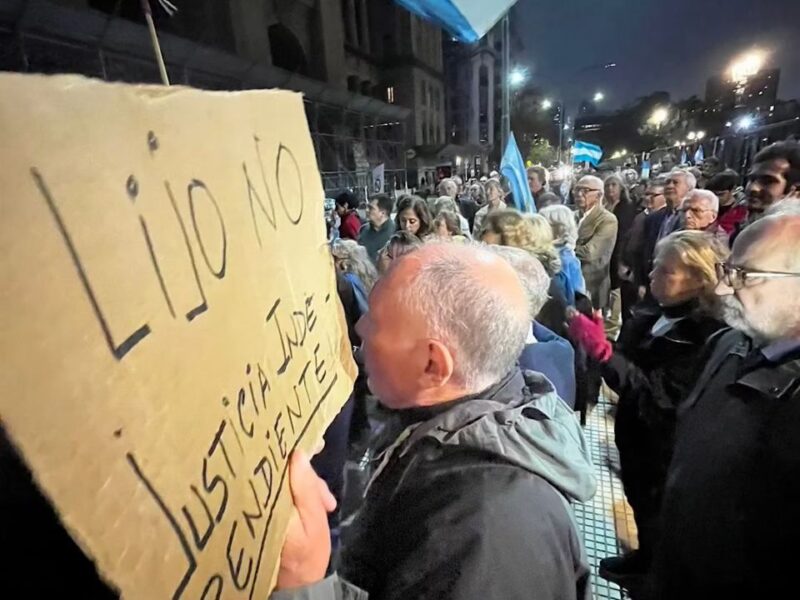 LIJO NO
JUSTICIA INDE-
PENDIENTE